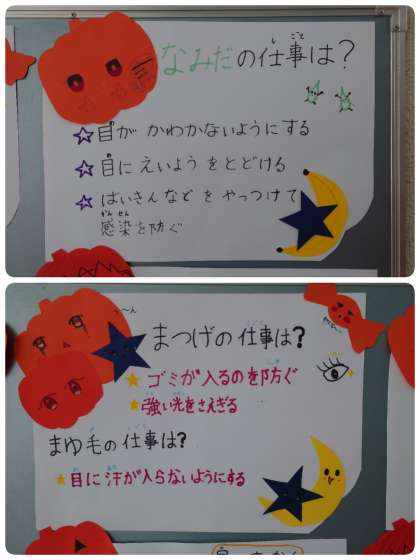 なみだの仕事は?
目がかわかないようにする
目にえいようをとどける
ばいきんなどをやっつけて
感染を防ぐ
まつげの仕事は?
ゴミが入るのを防ぐ
強い光をさえぎる
まゆ毛の仕事は?
目に汗が入らないようにする